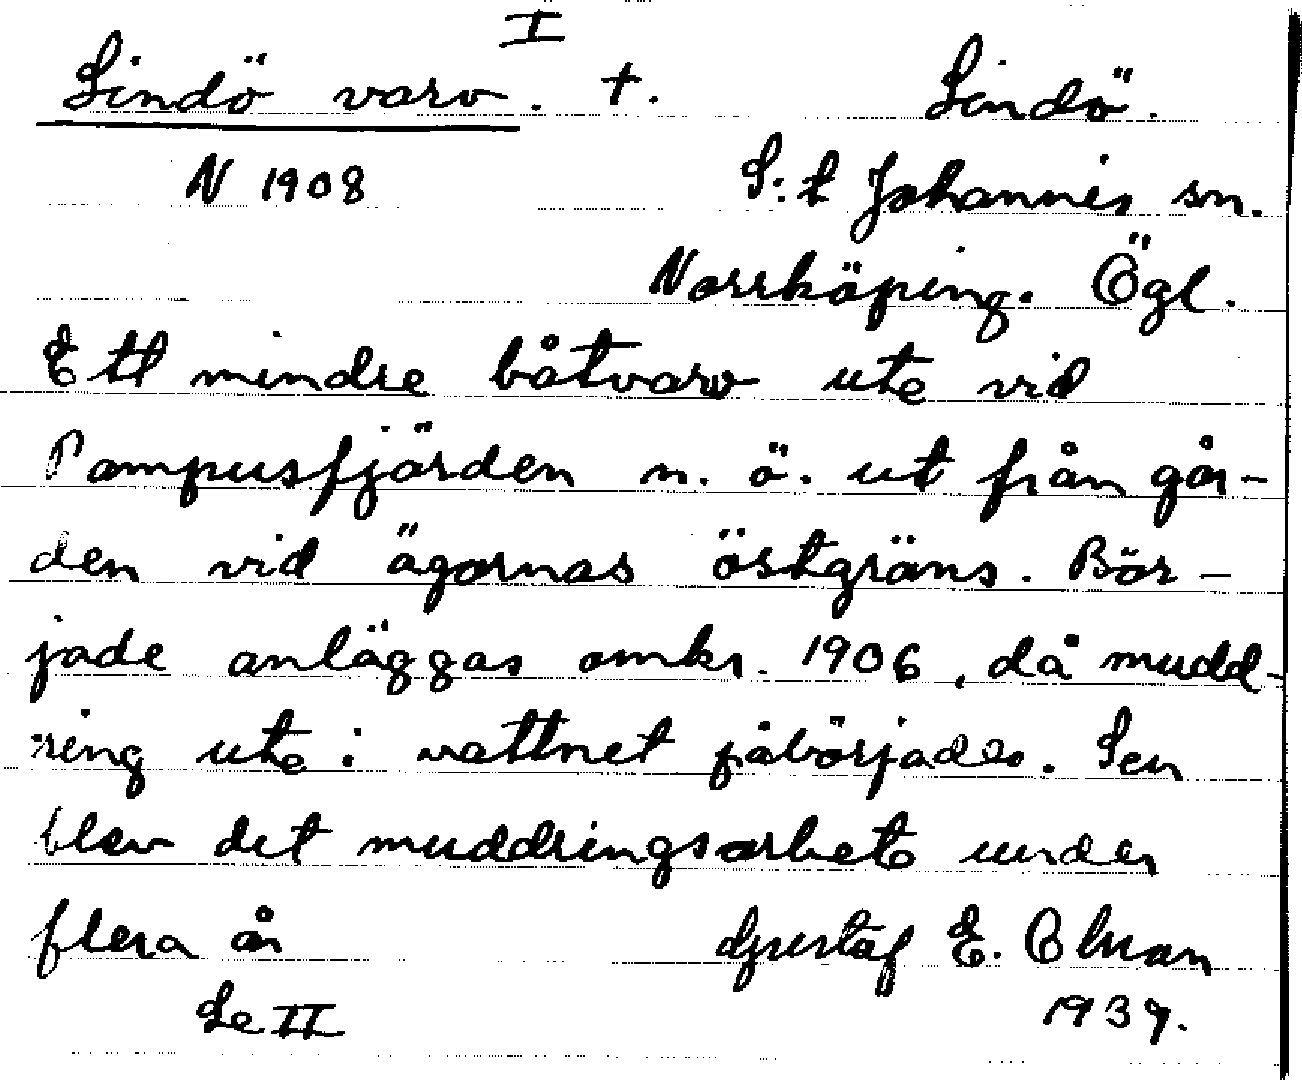 I
Lindö varv. †. Lindö.
N 1908 S:t Johannis sn.
Norrköping. Ögl.
Ett mindre båtvarv ute vid
Pampusfjärden n. ö. ut från går-
den vid ägornas östgräns. Bör-
jade anläggas omkr. 1906, då mudd-
ring ute i vattnet påbörjades. Sen
blev det muddringsarbete under
flera år Gustaf E. Ekman
Se II 1937.